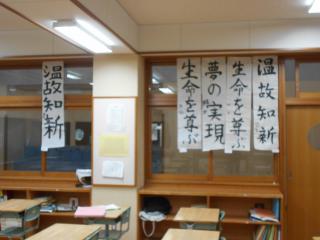 温故知新
生命を尊ぶ
夢の実現
生命を尊ぶ
温故知新